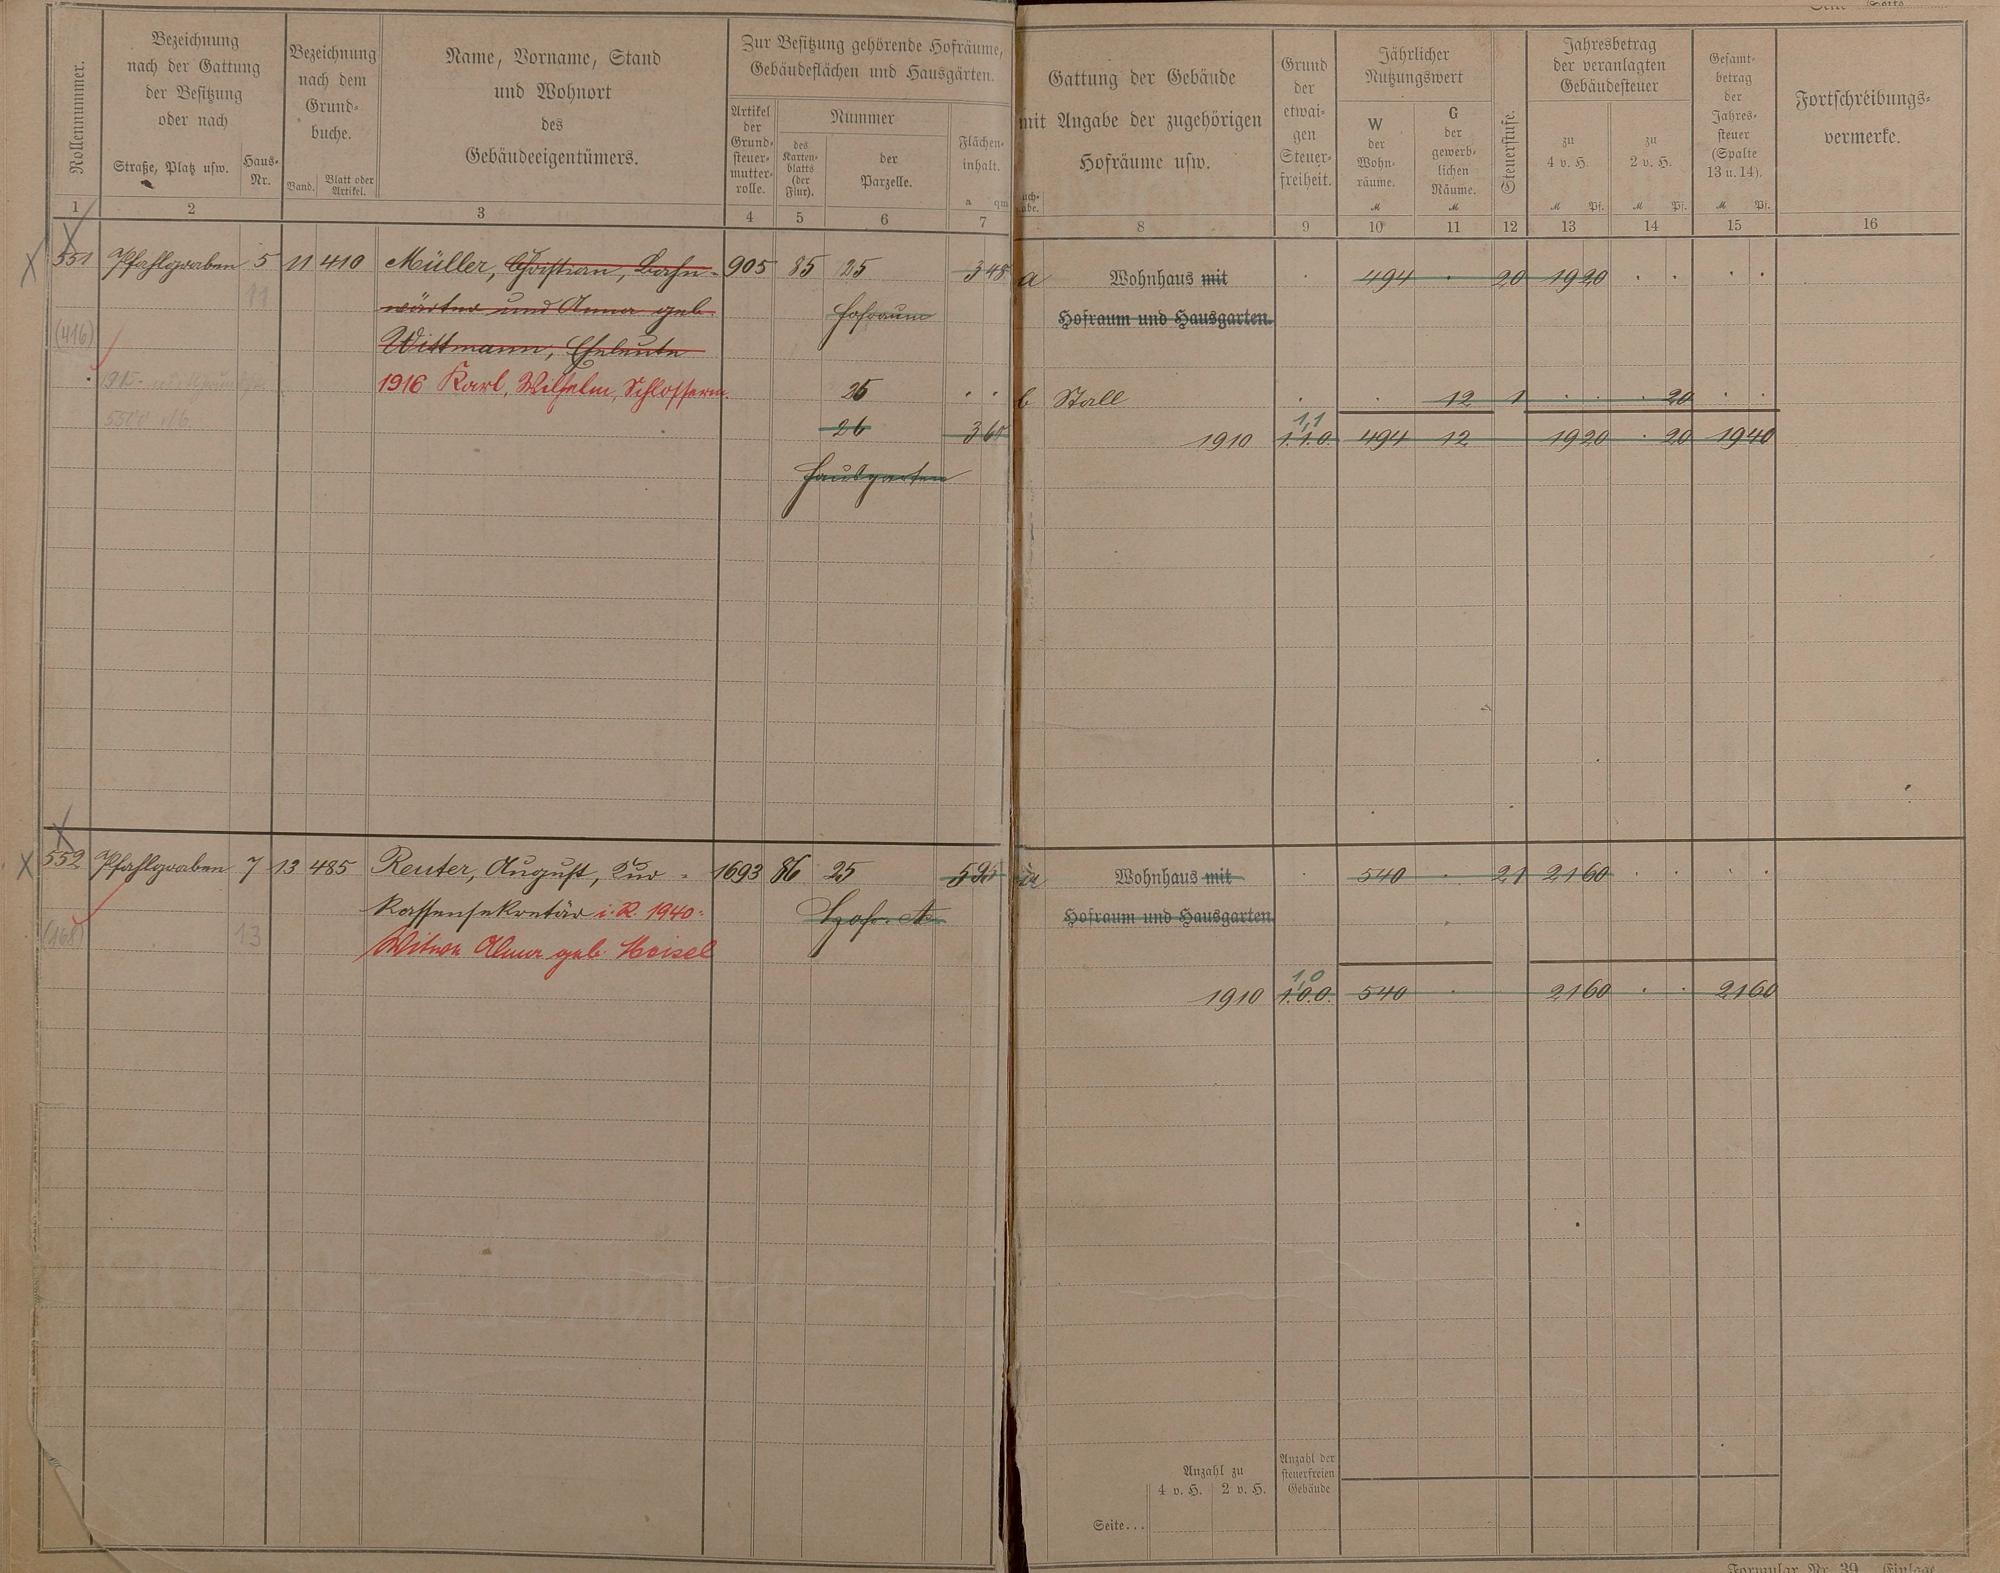 Rollennummer.
Bezeichnung
nach der Gattung
der Besitzung
oder nach
Straße, Platz usw.
Haus-
Nr.
Bezeichnung
nach dem
Grund-
buche.
Band.
Blatt oder
Artikel.
Name, Vorname, Stand
und Wohnort
des
Gebäudeeigentümers.
Zur Besitzung gehörende Hofräume,
Gebäudeflächen und Hausgärten.
Artikel
der
Grund-
steuer-
mutter-
rolle.
Nummer
des
Karten-
blatts
(der
Flur).
der
Parzelle.
Flächen-
inhalt.
a qm
Gattung der Gebäude
mit Angabe der zugehörigen
Hofräume usw.
Grund
der
etwai-
gen
Steuer-
freiheit.
Jährlicher
Nutzungswert
W
der
Wohn-
räume.
M
G
der
gewerb-
lichen
Räume.
M
Steuerstufe.
Jahresbetrag
der veranlagten
Gebäudesteuer
zu
4 v. H.
M Pf.
zu
2 v. H.
M Pf.
Gesamt-
betrag
der
Jahres-
steuer
(Spalte
13 u. 14).
M Pf.
Fortschreibungs-
vermerke.
1 2 3 4 5 6 7 8 9 10 11 12 13 14 15 16
551 Pfahlgraben 5 11 410 Müller, Christian, Bahn- 905 85 25 3 48 a Wohnhaus mit 494 · 20 19 20 · · · ·
11 wärter und Anna geb. Hofraum Hofraum und Hausgarten.
(416) Wittmann, Eheleute
1916 Karl, Wilhelm, Schlosserm. 25 · · b Stall · · 12 1 · · · 20 · ·
26 3 60 1910 1.1.0. 1,1 494 12 19 20 · 20 19 40
Hausgarten
552 Pfahlgraben 7 13 485 Reuter, August, Kur- 1693 86 25 a Wohnhaus mit · 540 · 21 21 60 · · · ·
kassensekretär i. R. 1940: Hofraum und Hausgarten.
(168) 13 Witwe Alma geb. Meisel
1910 1.0.0. 1,0 540 · 21 60 · · 21 60
Anzahl zu
4 v. H. 2 v. H.
Anzahl der
steuerfreien
Gebäude
Seite...
Formular Nr. 39. Einlage